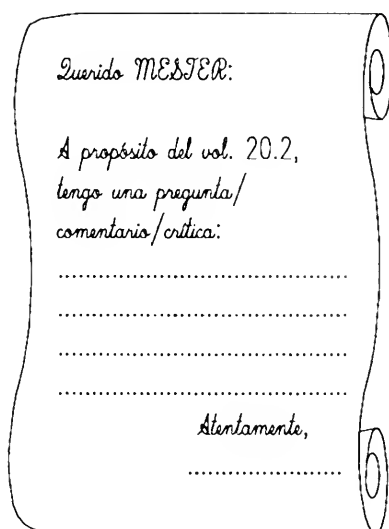 Querido MESTER:
A propósito del vol. 20.2,
tengo una pregunta/
comentario/crítica:
................................................
................................................
................................................
................................................
Atentamente,
.........................